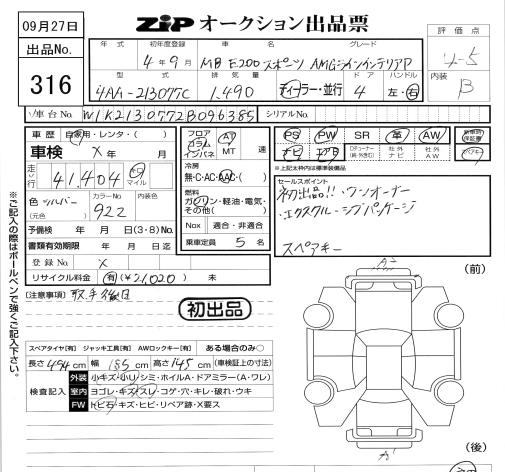 09月27日
ZiP オークション出品票
評価点
出品No.
年式 初年度登録 車名 グレード
4年9月 MB E200 スポーツ AMGラインインテリアP
4-5
316
型式 排気量 ドア ハンドル
内装
4AA-213077C 1,490 ディーラー・並行 4 左・右
B
車台No. W1K2130772B096385 シリアルNo.
車歴 自家用・レンタ・( )
フロア コラム インパネ AT MT 速
PS PW SR 革 AW
車検 X年 月
ナビ エアB Dチューナー(純・外含む) 社外ナビ 社外AW
走行 41,404 キロ マイル
冷房 無・C・AC・AAC・( )
※上記太枠内は標準装備品
色 シルバー (元色) カラーNo. 922 内装色
燃料 ガソリン・軽油・電気・その他( )
セールスポイント
初出品!!・ワンオーナー
予備検 年 月 日(3・8)No.
Nox 適合・非適合
・エクスクルーシブパッケージ
書類有効期限 年 月 日迄
乗車定員 5 名
スペアキー
登録No. X
リサイクル料金 有(¥21,020) 未
(前)
[注意事項]
初出品
※ご記入の際はボールペンで強くご記入下さい。
スペアタイヤ[有] ジャッキ工具[有] AWロックキー[有] ある場合のみ○
長さ 494 cm 幅 185 cm 高さ 145 cm (車検証上の寸法)
検査記入
外装 小キズ・小U・シミ・ホイルA・ドアミラー(A・ワレ)
室内 ヨゴレ・キズ・スレ・コゲ・穴・キレ・破れ・ウキ
FW トビ石・キズ・ヒビ・リペア跡・X要ス
(後)